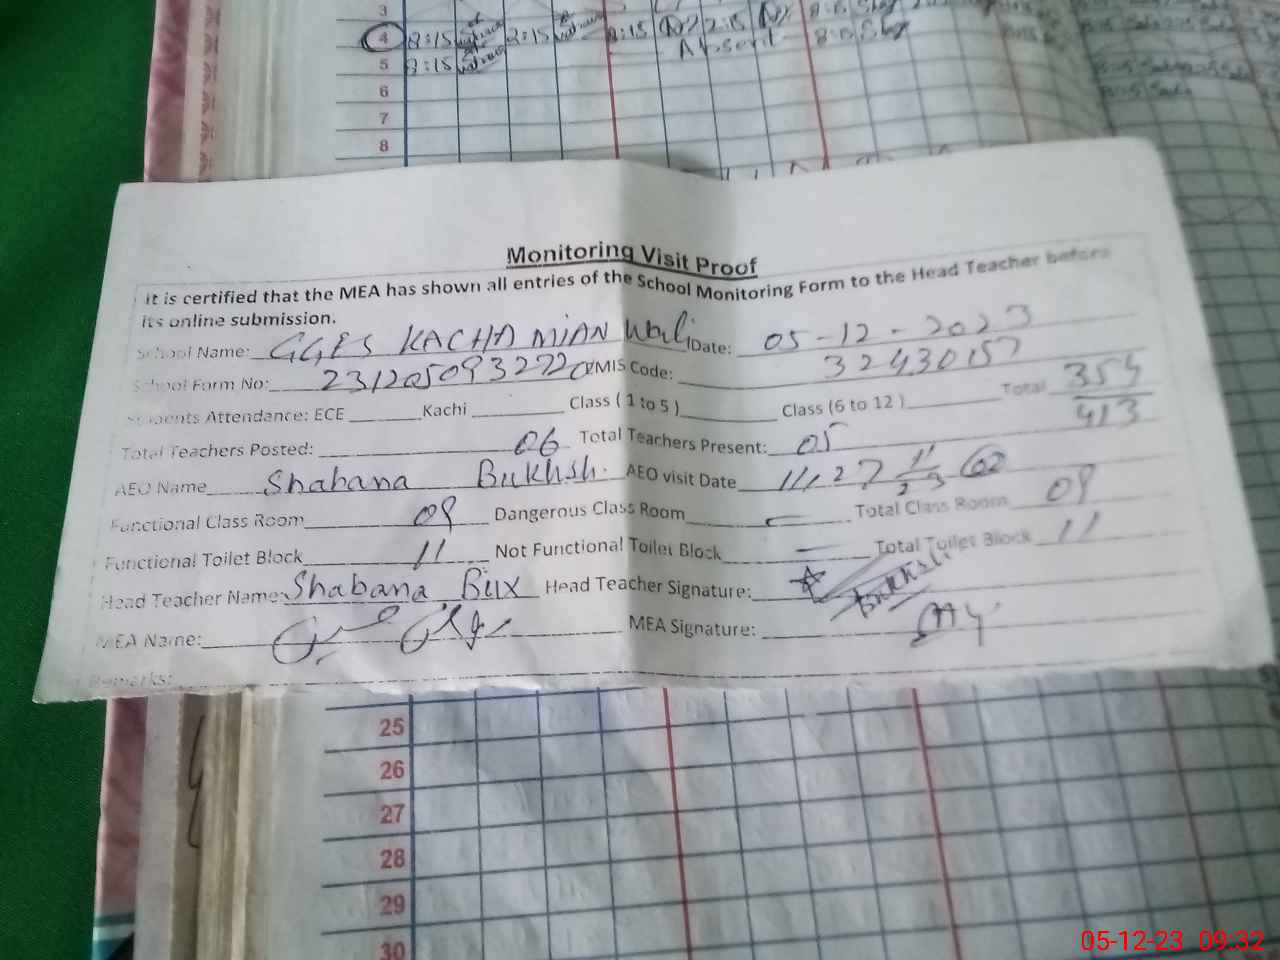 3
4 8:15 2:15 8:15 2:15
Absent
5 8:15
6
7
8
Monitoring Visit Proof
It is certified that the MEA has shown all entries of the School Monitoring Form to the Head Teacher before
its online submission.
School Name: GGES KACHA MIAN Wali Date: 05-12-2023
School Form No: EMIS Code: 32430157
Students Attendance: ECE Kachi Class ( 1 to 5 ) Class (6 to 12 ) Total 354
413
Total Teachers Posted: 06 Total Teachers Present: 05
AEO Name Shabana Bukhsh. AEO visit Date
Functional Class Room 09 Dangerous Class Room — Total Class Room 09
Functional Toilet Block 11 Not Functional Toilet Block — Total Toilet Block 11
Head Teacher Name: Shabana Bux Head Teacher Signature:
MEA Name: MEA Signature:
Remarks:
25
26
27
28
29
30
05-12-23 09:32